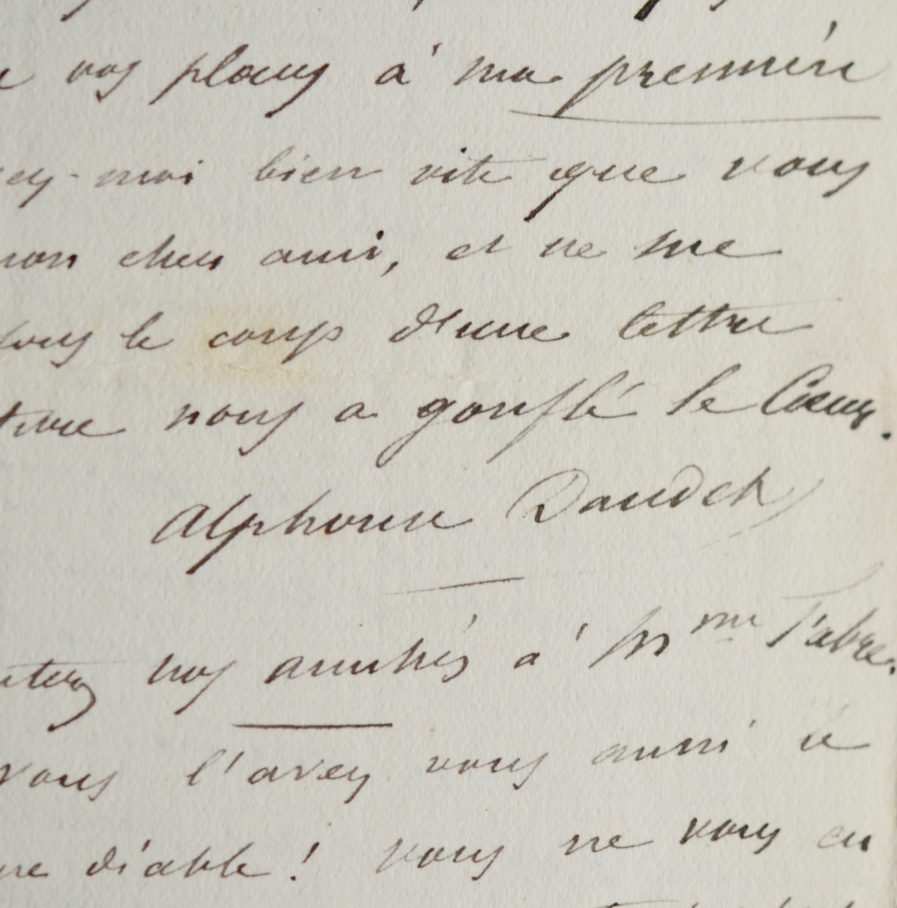 vos places à ma première
ez-moi bien vite que vous
mon cher ami, et ne me
sous le coup d'une lettre
ture nous a gonflé le Cœur.
Alphonse Daudet
nos amitiés à Mme Fabre.
vous l'avez vous aussi le
diable ! Vous ne vous en